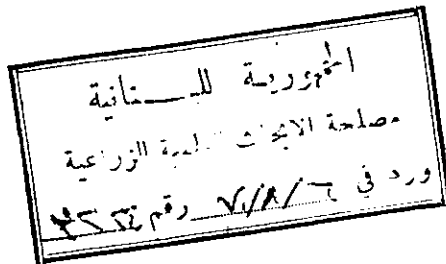 الجمهورية اللبـــنانية
مصلحة الابحاث العلمية الزراعية
ورد في ٧١/٨/٦ رقم